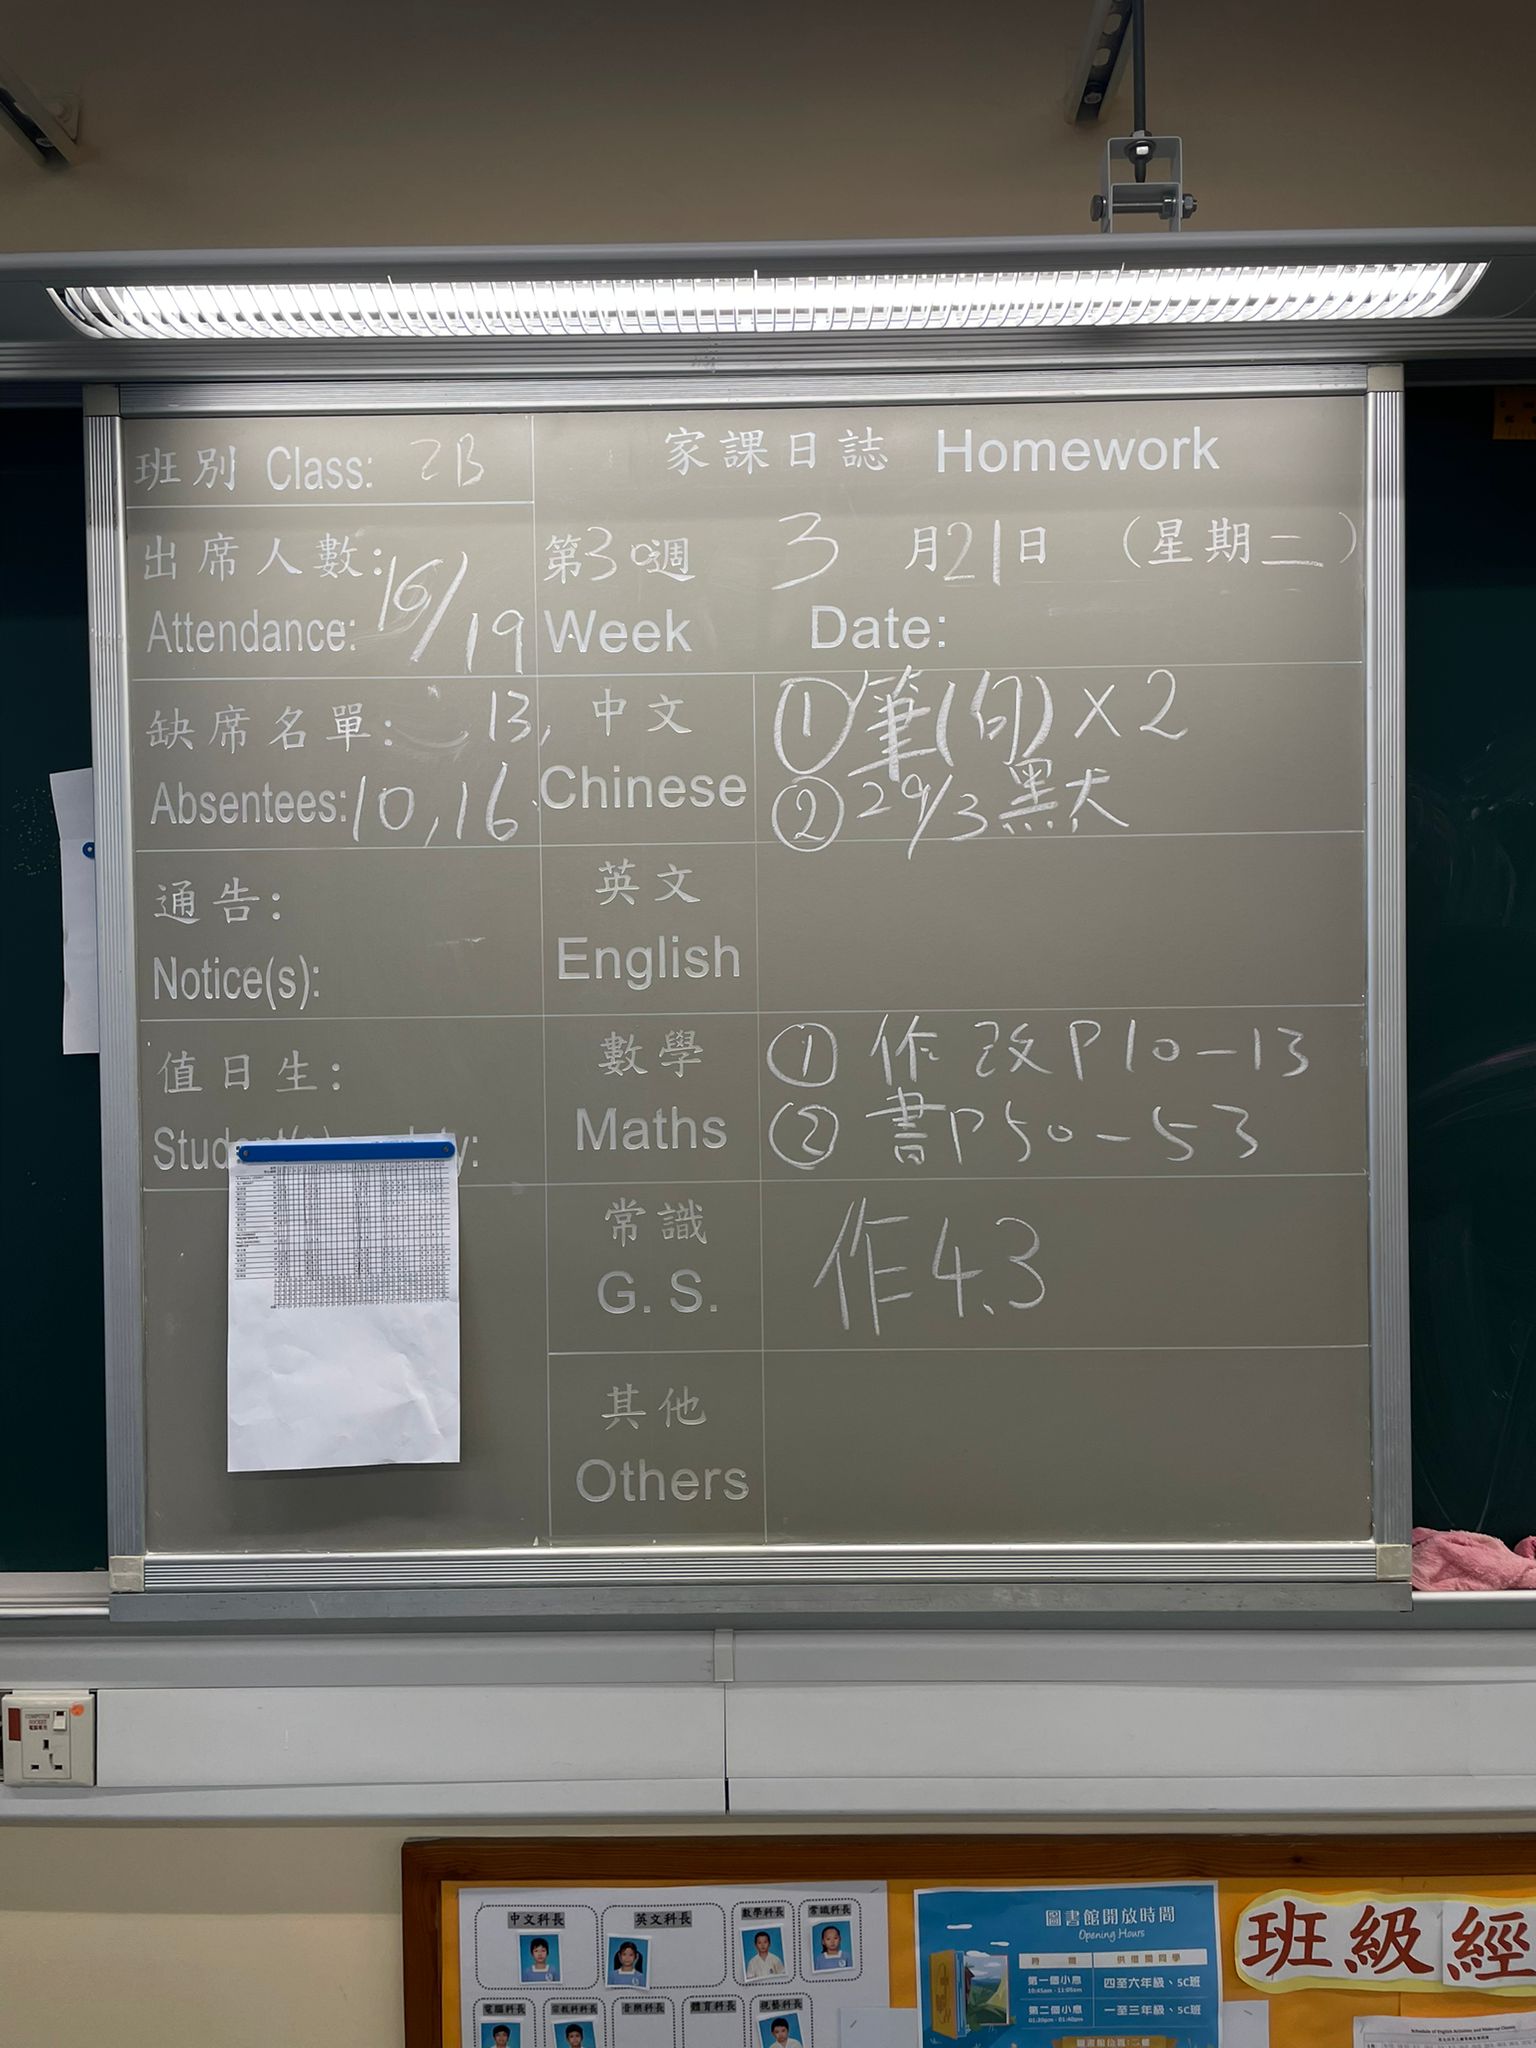 班別 Class: 2B
家課日誌 Homework
出席人數: 16/19
Attendance:
第30週 3月21日 (星期二)
Week Date:
缺席名單: 13,
Absentees: 10, 16
中文 ①筆(句)×2
Chinese ②29/3黑犬
通告:
Notice(s):
英文
English
值日生:
數學 ① 作改P10-13
Maths ② 書P50-53
常識 作4.3
G. S.
其他
Others
COMPUTER
SOCKET
電腦專用
中文科長
英文科長
數學科長
常識科長
電腦科長
宗教科科長
音樂科長
體育科長
視藝科長
圖書館開放時間
Opening Hours
時間 供借閱同學
第一個小息 四至六年級、5C班
10:45am - 11:05am
第二個小息 一至三年級、5C班
01:20pm - 01:40pm
班級經